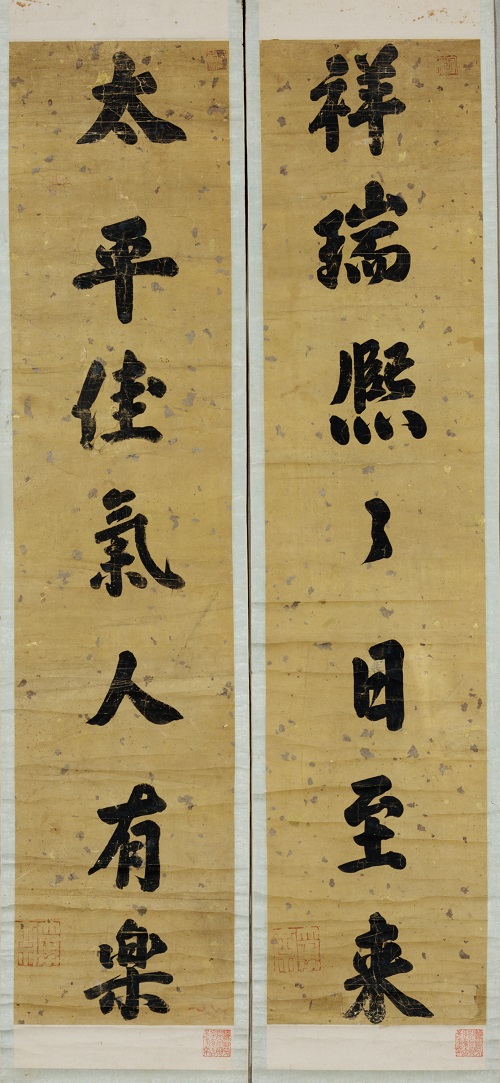 祥瑞熙〻日至来
太平佳氣人有樂